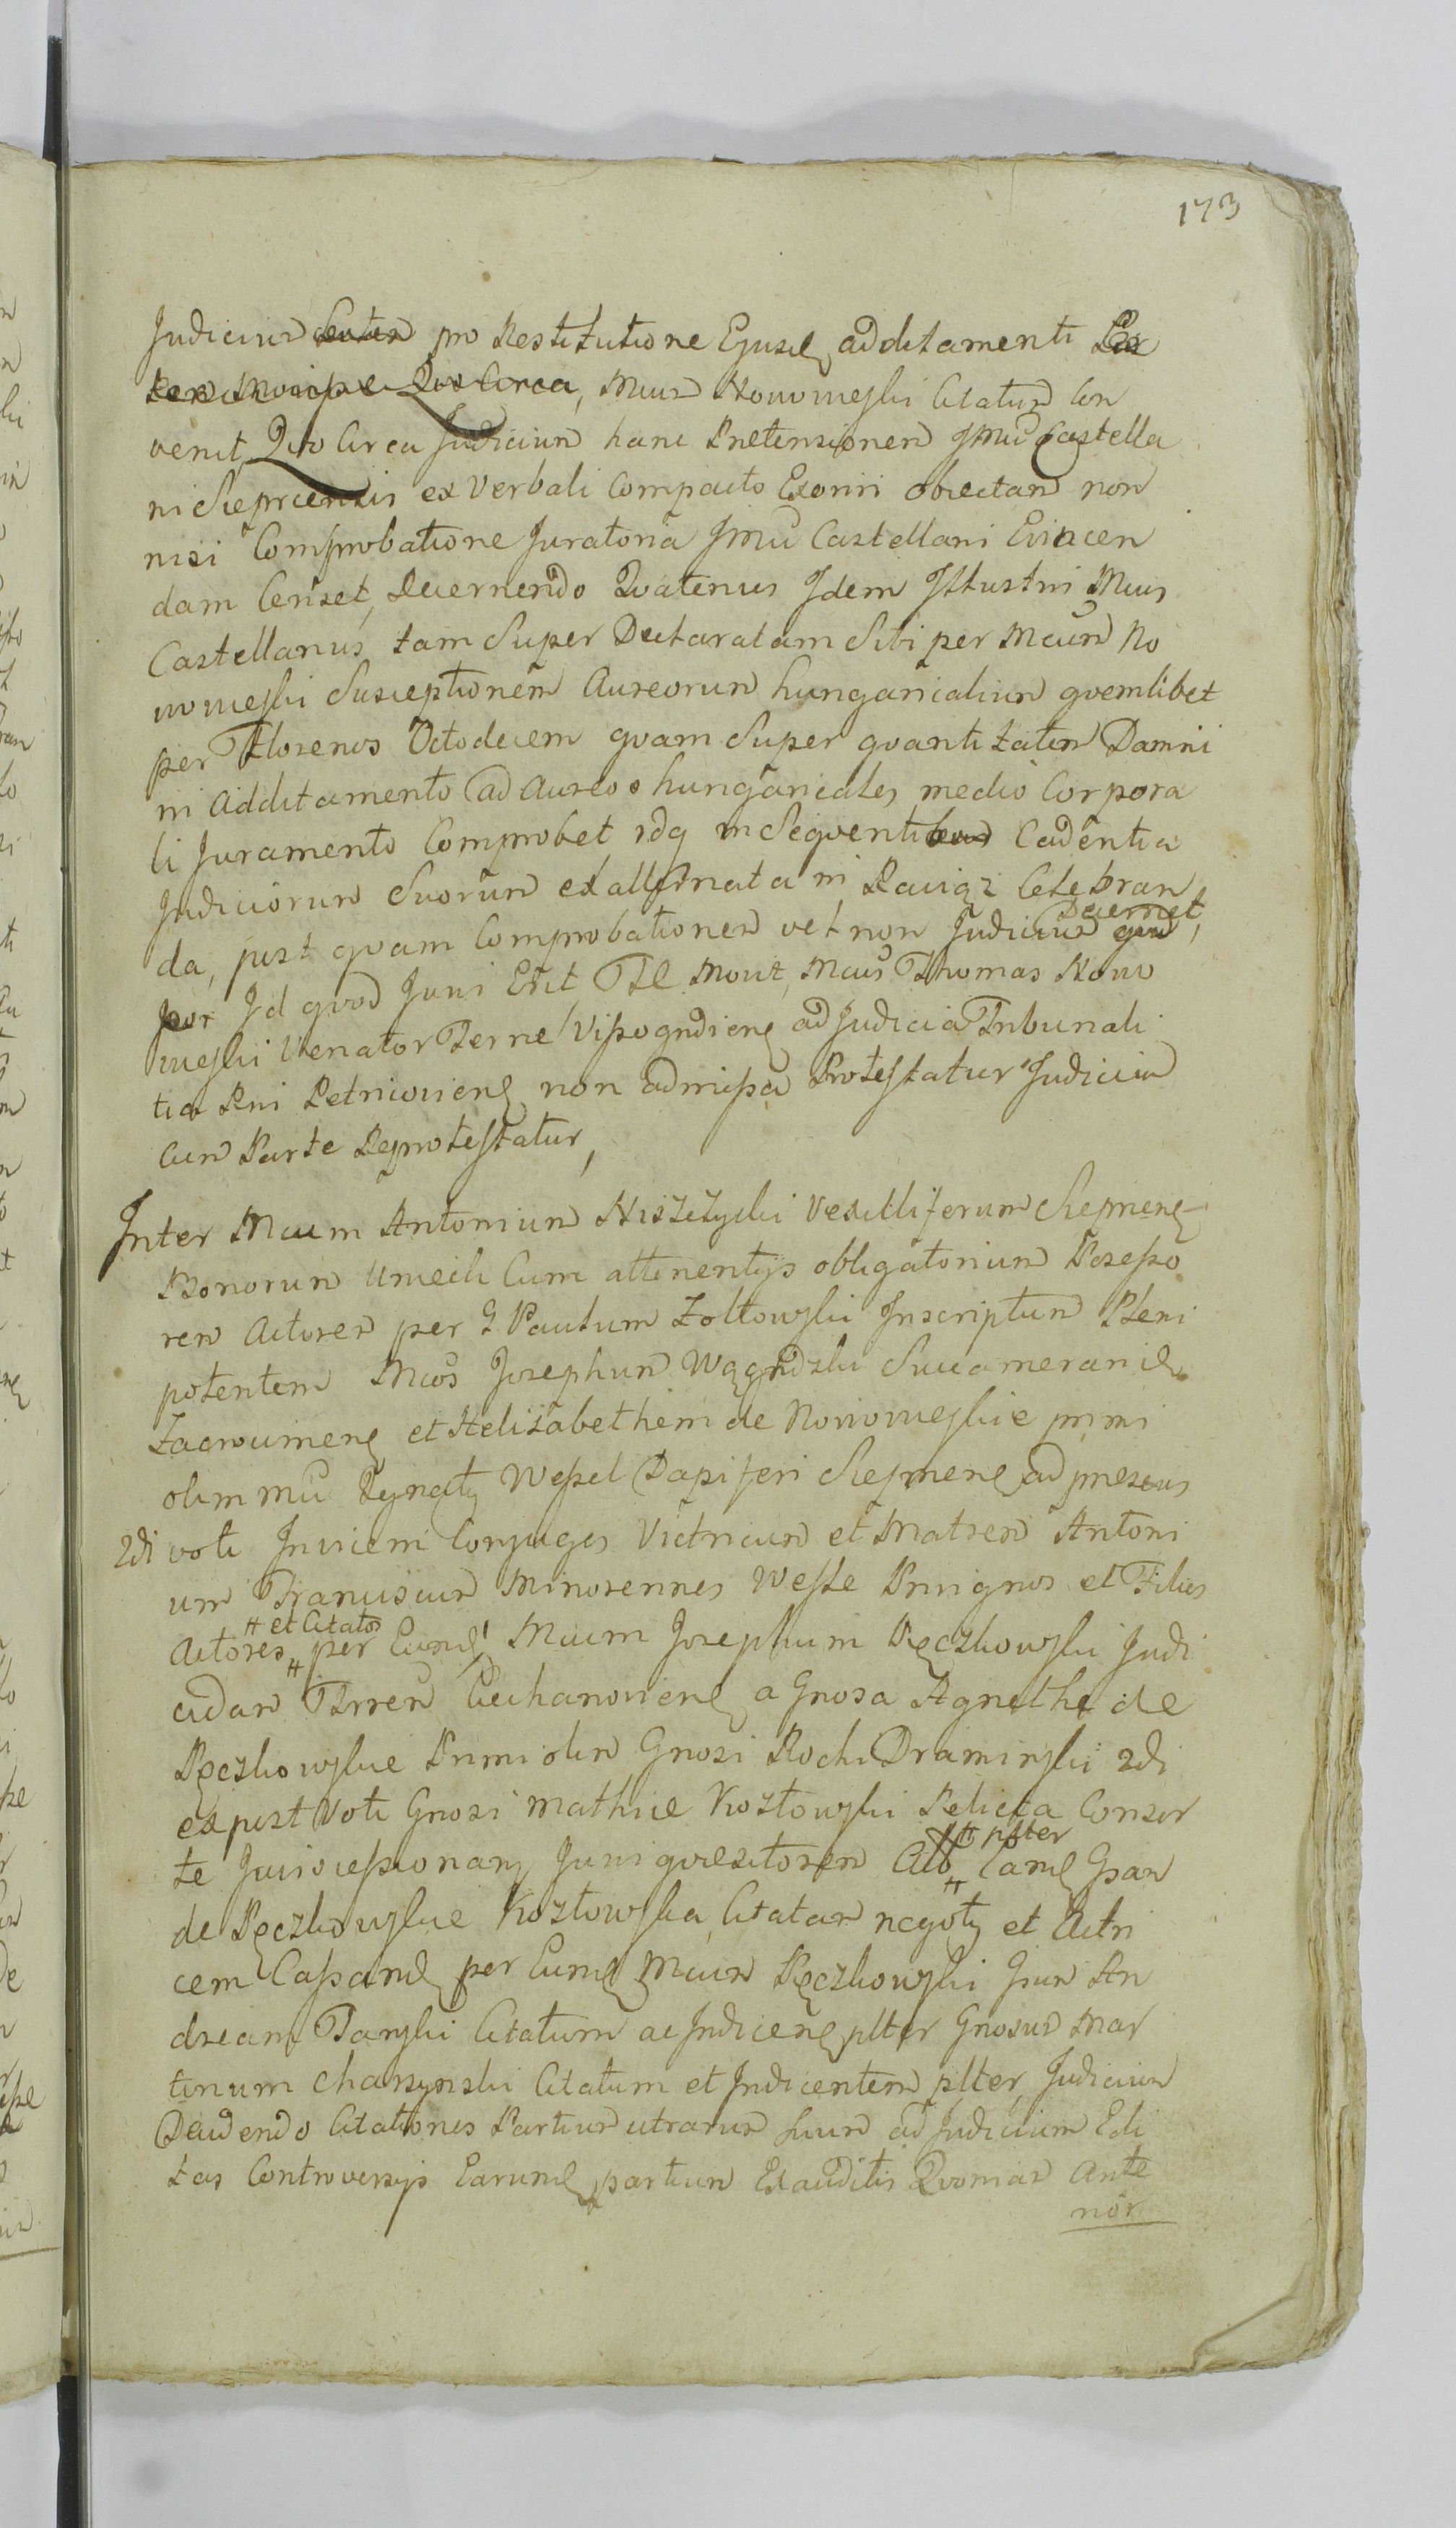 173
Judicium pro Restitutione Ejusd additamenti
Quo Circa, Mcum Nowowieyski Citatum Con
venit, Quo Circa Judicium hanc Praetensionem Jllmi Castella
ni Sieprcensis ex Verbali Compacto Exoriri obiectam non
nisi Comprobatione Juratoria Jllmi Castellani Evincen
dam Censet, Decernendo Qvatenus Jdem Jllustris Mcus
Castellanus, tam Super Declaratam Sibi per Mcum No
wowieyski Susceptionem Aureorum hungaricalium qvemlibet
per Florenos Octodecem qvam Super qvantitatem Damni
in Additamento ad Aureos hungaricales, medio Corpora
li Juramento Comprobet idq in Seqventi Cadentia
Judiciorum Suorum ex alternata in Raciąż Celebran
da, post qvam Comprobationem vel non Judicium Decernet,
Jd qvod Juris Erit, Mcus Thomas Nowo
wieyski Venator Terrae Vissogrdiens ad Judicia Tribunali
tia Rni Petricoviens non admissa Protestatur Judicium
cum Parte Reprotestatur,
Jnter Mcum Antonium Niszczycki Vexilliferum Sieprcens
Bonorum Umecki Cum attinentijs obligatorium Possesso
rem Actorem per G Paulum Żołtowski Jnscriptum Pleni
potentem Mcos Josephum Wągrodzki Succamerarid
Zacrocimens et Helisabethem de Nowowieyskie primi
olim Mci Jgnatij Wessel Dapiferi Sieprcens ad praesens
2di voti Jnvicem Conjuges Vitricum et Matrem Antoni
um Franciscum Minorennes Wessle Privignos et Filios
Actores # et Citatos per Eund Mcum Josephum Pęczkowski Judi
cidam Trren Ciechanoviens a Gnosa Agnethe de
Pęczkowskie Primi olim Gnosi Rochi Draminski 2di
ex post Voti Gnosi Mathiae Kozłowski Relicta Consor
te Juriocessionarj Juri qvaesitorem Ac # plter Eand Gsam
de Pęczkowskie Kozłowska Citatam negotij et Actri
cem Cassand per Eund Mcum Pęczkowski Gsum An
dream Tanski Citatum ac Jndicens plter Gnosum Mar
tinum Charzynski Citatum et Jndicentem plter, Judicium
Citationes Partium utrarum huius ad Judicium Edi
tas Controversijs Earund partium Exauditis Qvoniam Ante
nor